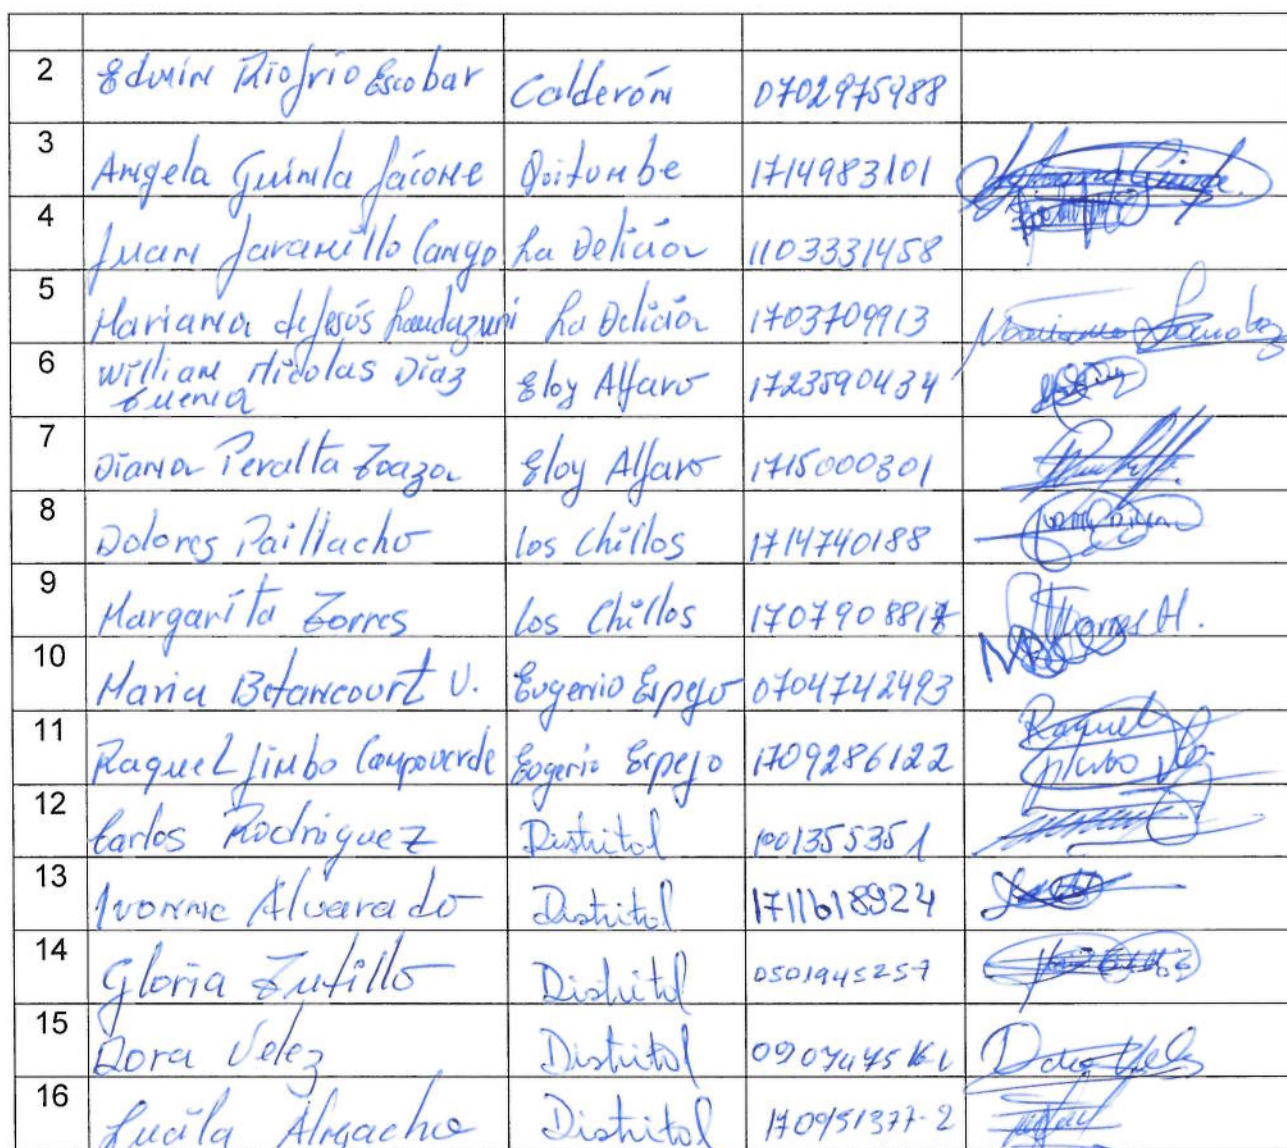 2 Edwin Riofrio Escobar Calderón 0702975988
3 Angela Guinla Jácome Quitumbe 1714983101
4 Juan Jaramillo Cango La Delicia 1103331458
5 Mariana de Jesús Landazuri La Delicia 1703709913
Mariana Landaz
6 William Nicolas Díaz Eloy Alfaro 1723590434
Guema
7 Diana Peralta Toaza Eloy Alfaro 1715000301
8 Dolores Paillacho los Chillos 1714740188
9 Margarita Torres los Chillos 170790881
Torres H.
10 Maria Betancourt V. Eugenio Espejo 0704742493
11 Raquel Jimbo Campoverde Eugenio Espejo 1709286122
Raquel
Jimbo
12 Carlos Rodriguez Distrital 1001355351
13 Ivonne Alvarado Distrital 1711618924
14 Gloria Tutillo Distrital 050194525-7
15 Dora Velez Distrital
Dora Velez
16 Lucila Almacho Distrital 170951377-2